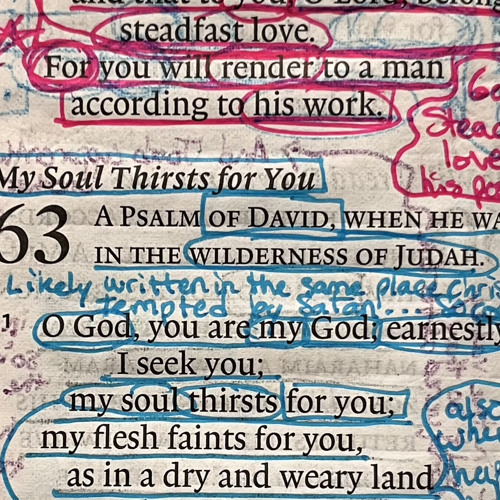 and that to you, O Lord, belong
steadfast love.
For you will render to a man
according to his work.
Stead
love
his po
My Soul Thirsts for You
63 A PSALM OF DAVID, WHEN HE WA
IN THE WILDERNESS OF JUDAH.
Likely written in the same place Chri
tempted by Satan...
1 O God, you are my God; earnestly
I seek you;
my soul thirsts for you;
my flesh faints for you,
as in a dry and weary land
also